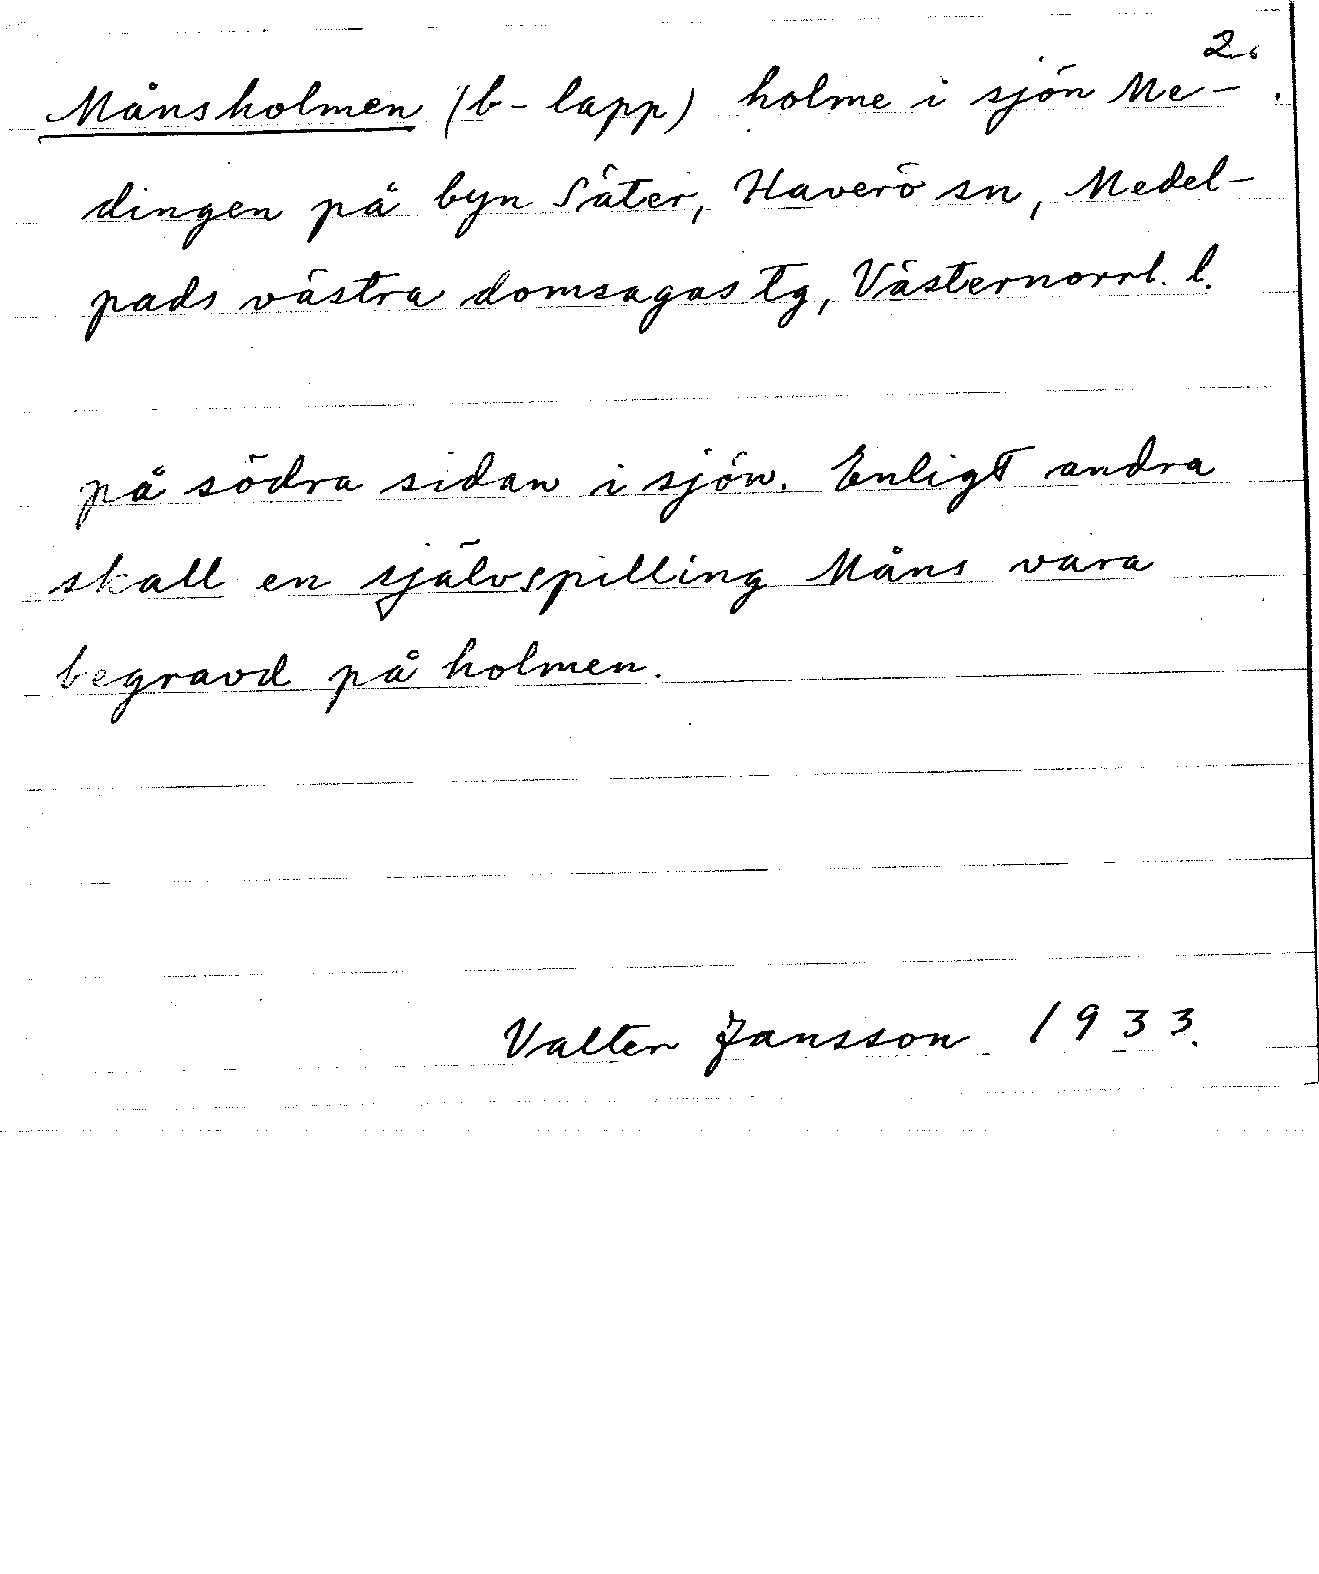 2.
Månsholmen (b-lapp) holme i sjön Me-
dingen på byn Säter, Haverö sn, Medel-
pads västra domsagas tg, Västernorrl. l.
på södra sidan i sjön. Enligt andra
skall en självspilling Måns vara
begravd på holmen.
Valter Jansson 1933.